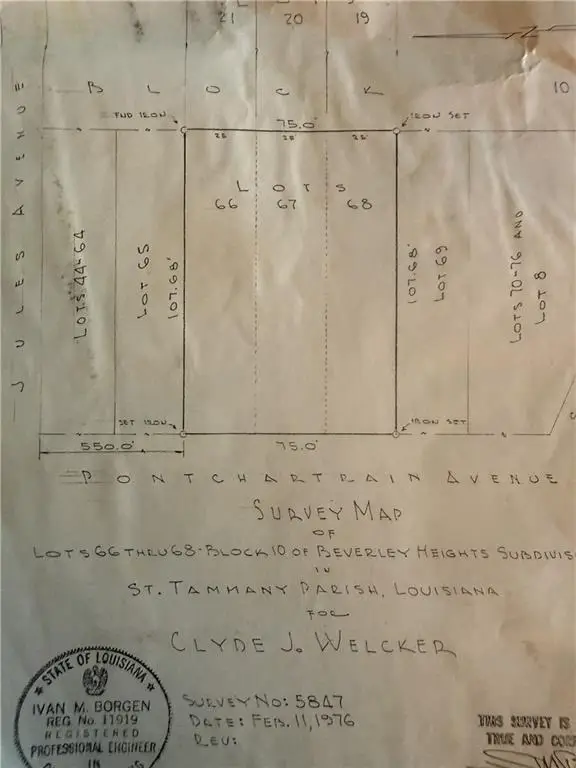 21 20 19
B L O C K 10
FND IRON 75.0' IRON SET
25' 25' 25'
JULES AVENUE
LOTS
66 67 68
LOTS 44-64
LOT 65
107.68'
107.68'
LOT 69
LOTS 70-76 AND
LOT 8
SET IRON IRON SET
550.0' 75.0'
PONTCHARTRAIN AVENUE
SURVEY MAP
OF
LOTS 66 THRU 68-BLOCK 10 OF BEVERLEY HEIGHTS SUBDIVIS
IN
ST. TAMMANY PARISH, LOUISIANA
FOR
CLYDE J. WELCKER
STATE OF LOUISIANA
IVAN M. BORGEN
REG No. 11919
REGISTERED
PROFESSIONAL ENGINEER
IN
SURVEY NO: 5847
DATE: FEB. 11, 1976
REV:
THIS SURVEY IS
TRUE AND COR